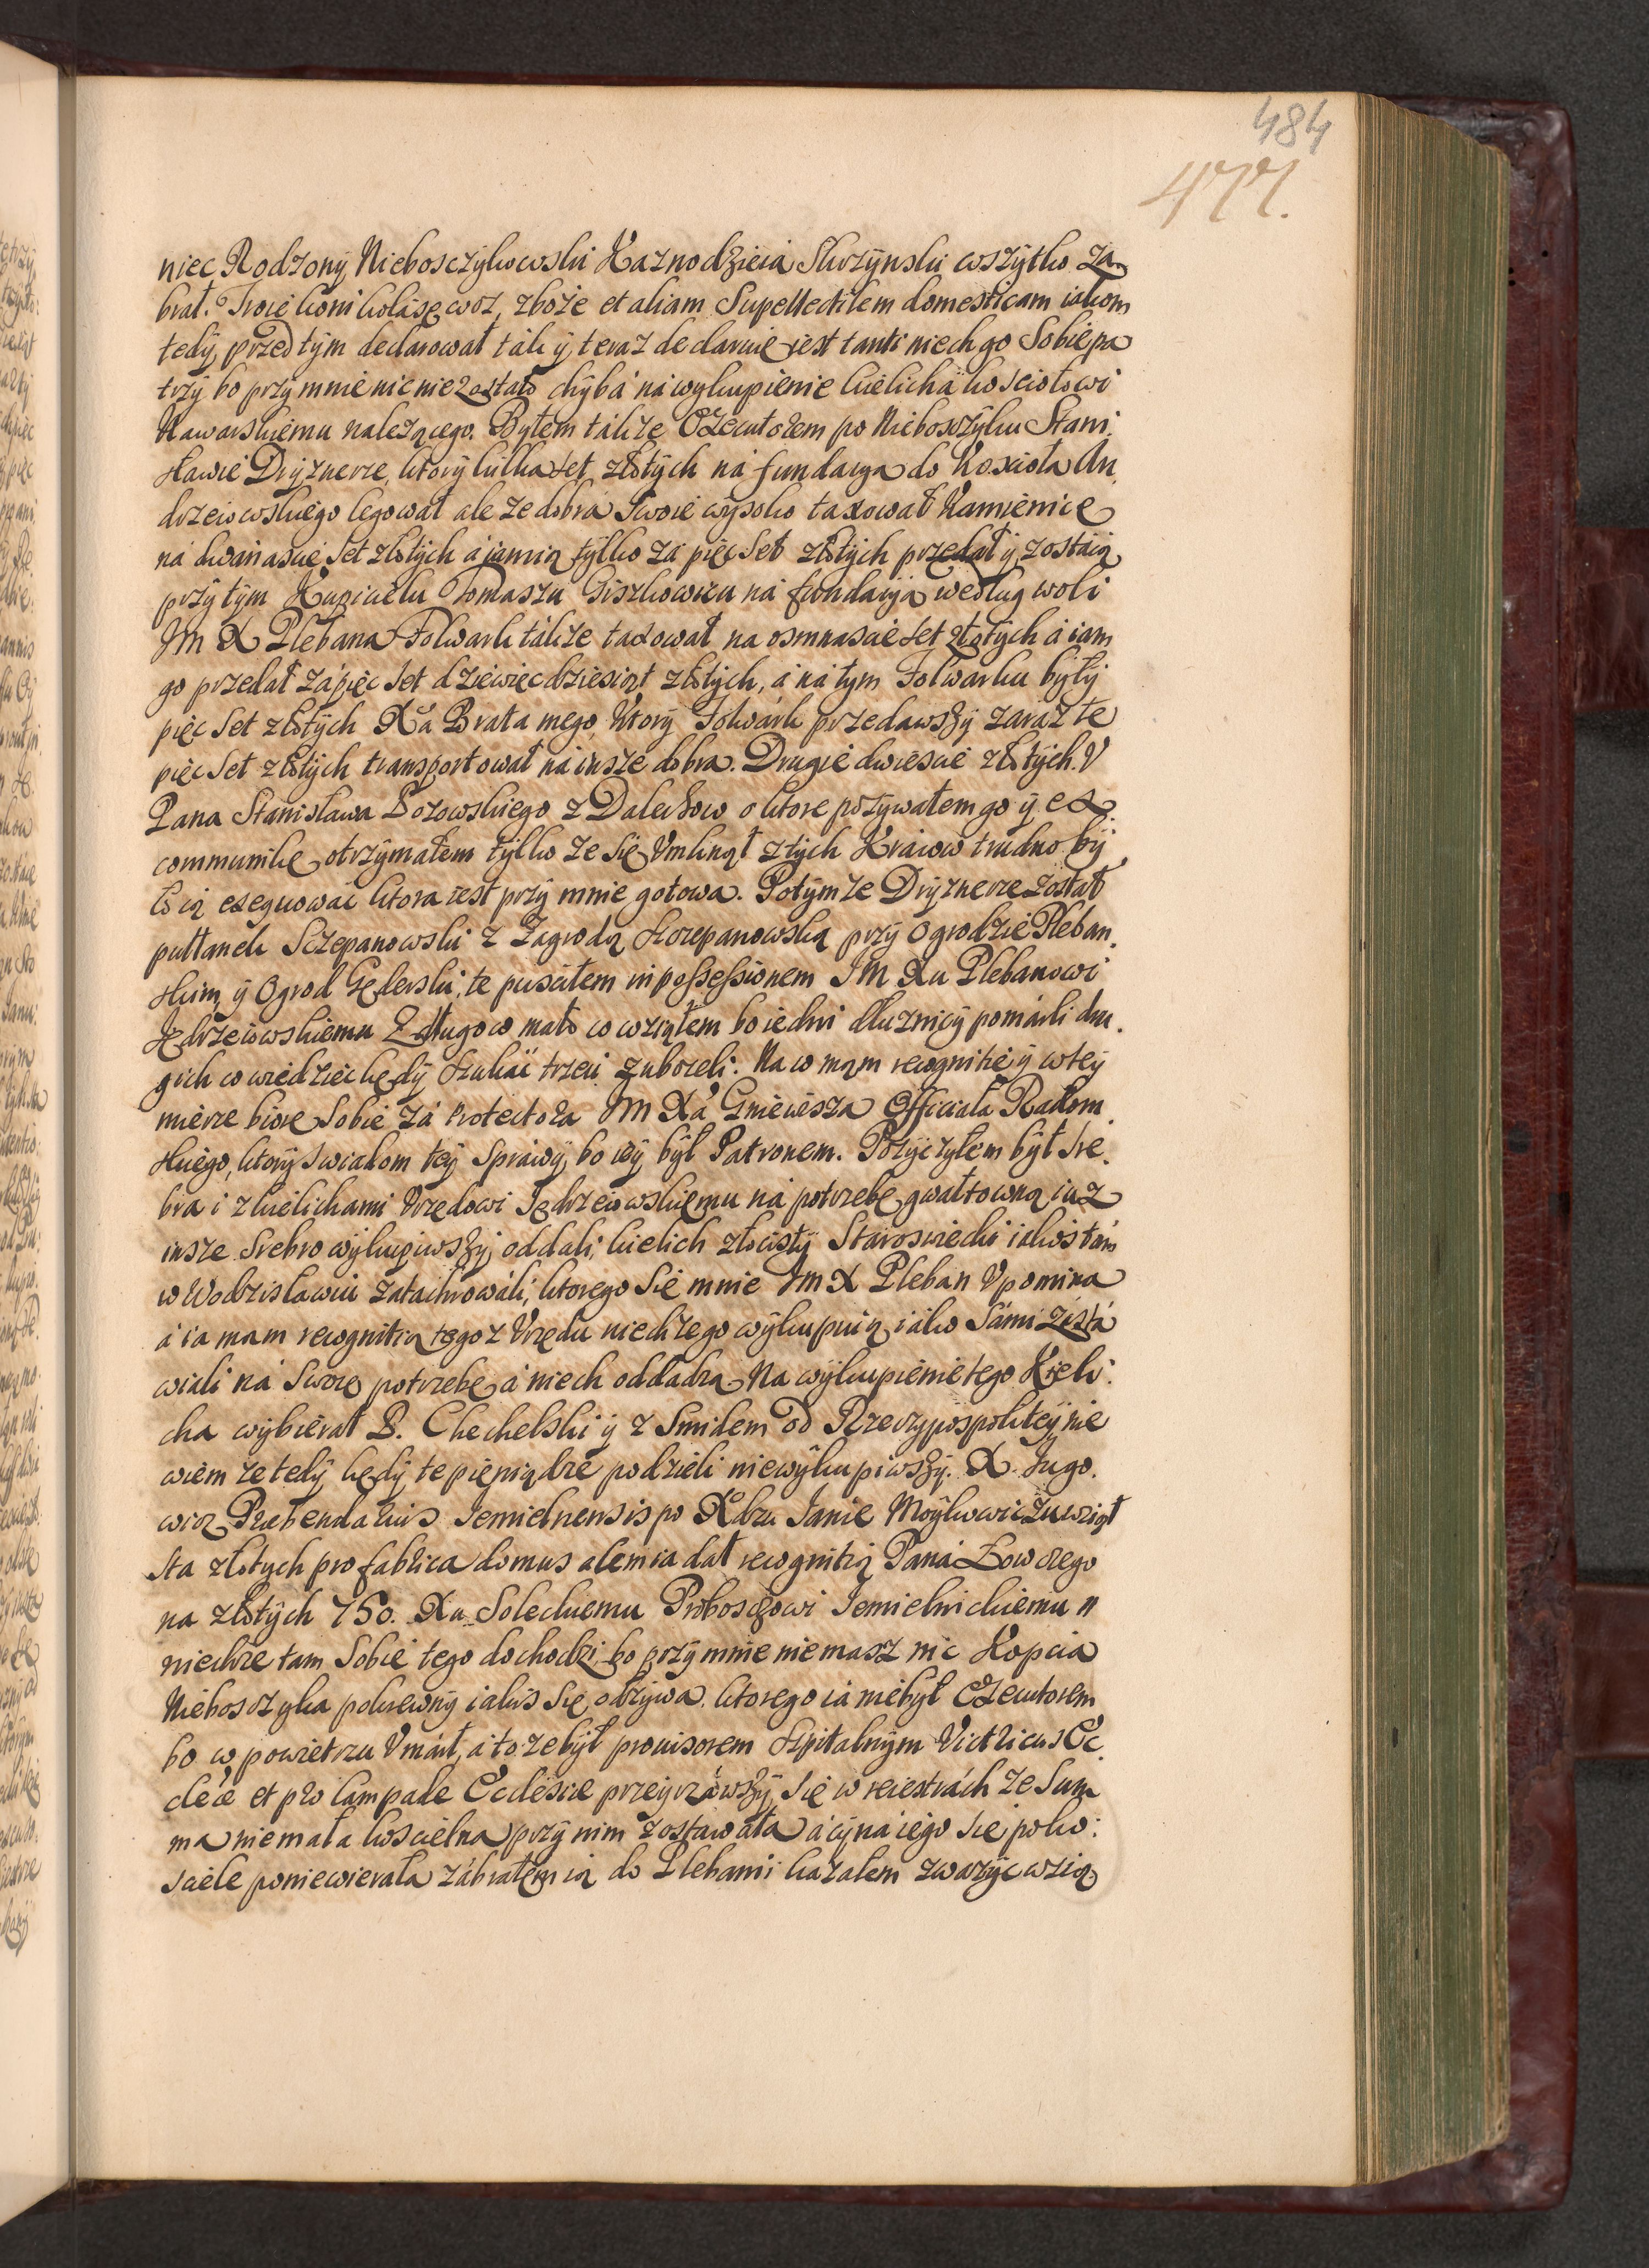 484
477.
niec Rodzony Nieboszczykowski Kaznodzieia Skrzynski wszytko za
brał. Troie koni kolasę woz, zboże et aliam Supellectilem domesticam iakom
tedy przed tym declarował tak y teraz declaruie iest tanti niech go Sobie pa
trzy bo przy mnie nic nie zostało chyba na wykupienie kielicha kosciołowi
Kawarskiemu należącego. Byłem takze Exekutorem po Nieboszczyku Stani
sławie Dryznerze, ktory kilka set złotych na fundacyą do Koscioła An
drzeiowskiego legował ale ze dobra Swoie wysoko taxował Kamienice
na dwanascie set złotych a iam ią tylko za pięc Set złotych przedał y zostaią
przy tym Kupicielu Tomaszu Giszkowicu na fundacyią według woli
Jm X Plebana Folwark takze taxował na osmnascie set złotych a iam
go przedał za pięc Set dziewięcdziesiąt złotych, a na tym Folwarku były
pięc Set złotych Xa Brata mego, ktory Folwark przedawszy zaraz te
pięc Set złotych transportował na insze dobra. Drugie dwiescie złotych V
Pana Stanisława Bozowskiego z Daleszow o ktore pozywałem go y ex
communikę otrzymałem tylko ze się Vmknął z tych Kraiow trudno by
ło ią exequowac ktora iest przy mnie gotowa. Potym ze Dryznerze został
pułłanek Sczepanowski z Zagrodą Sczepanowską przy Ogrodzie Pleban
skim y Ogrod Gęlerski, te pusciłem in possessionem JM Xu Plebanowi
Jędrzeiowskiemu Z długow mało co wziąłem bo iedni dłuznicy pomarli dru
gich co wiedziec kędy szukac trzeci zubozeli. Na co mąm recognitię y w tey
mierze biorę Sobie za Protectora JM Xa Gniewisza Officiała Radom
skiego, ktory swiadom tey Sprawy bo iey był Patronem. Pozyczyłem był sre
bra i z kielichami Vrzędowi Jędrzeiowskiemu na potrzebę gwałtowną iuz
insze Srebro wykupiwszy oddali, kielich złocisty Staroswiecki iakos tam
w Wodzisławiu zatachowali, ktorego Się mnie Jm X Pleban Vpomina
a ia mam recognitią tego z Vrzędu niech ze go wykupuią iako Sami zasta
wiali na Swoię potrzebę a niech oddadzą. Na wykupienie tego Kieli
cha wybierał P. Chechelski y z Smidem od Rzeczypospolitey nie
wiem ze tedy kędy te pięniądze podzieli niewykupiwszy. X. Jugo
wicz Præbendarius Jemielnensis po Xdzu Janie Moykowiczu wziął
sta złotych pro fabrica domus alem ia dał recognitią Pana Łowczego
na złotych 750. Xu Soleckiemu Proboszczowi Jemielnickiemu
niechze tam Sobie tego dochodzi, bo przy mnie nie masz nic Kopcia
Nieboszczyka pokrewny iakis się odzywa. ktorego ia nie był Exekutorem
bo w powietrzu Vmarł, a to ze był prouisorem szpitalnym Victricus Ec
cleæ et pro lampade Ecclesiæ przeyrzawszy Się w reiestrach ze Sum
ma niemała koscielna przy nim zostawała a cyna iego się po ko
sciele poniewierała zabrałem ią do Plebanii kazałem zwazyc wzią